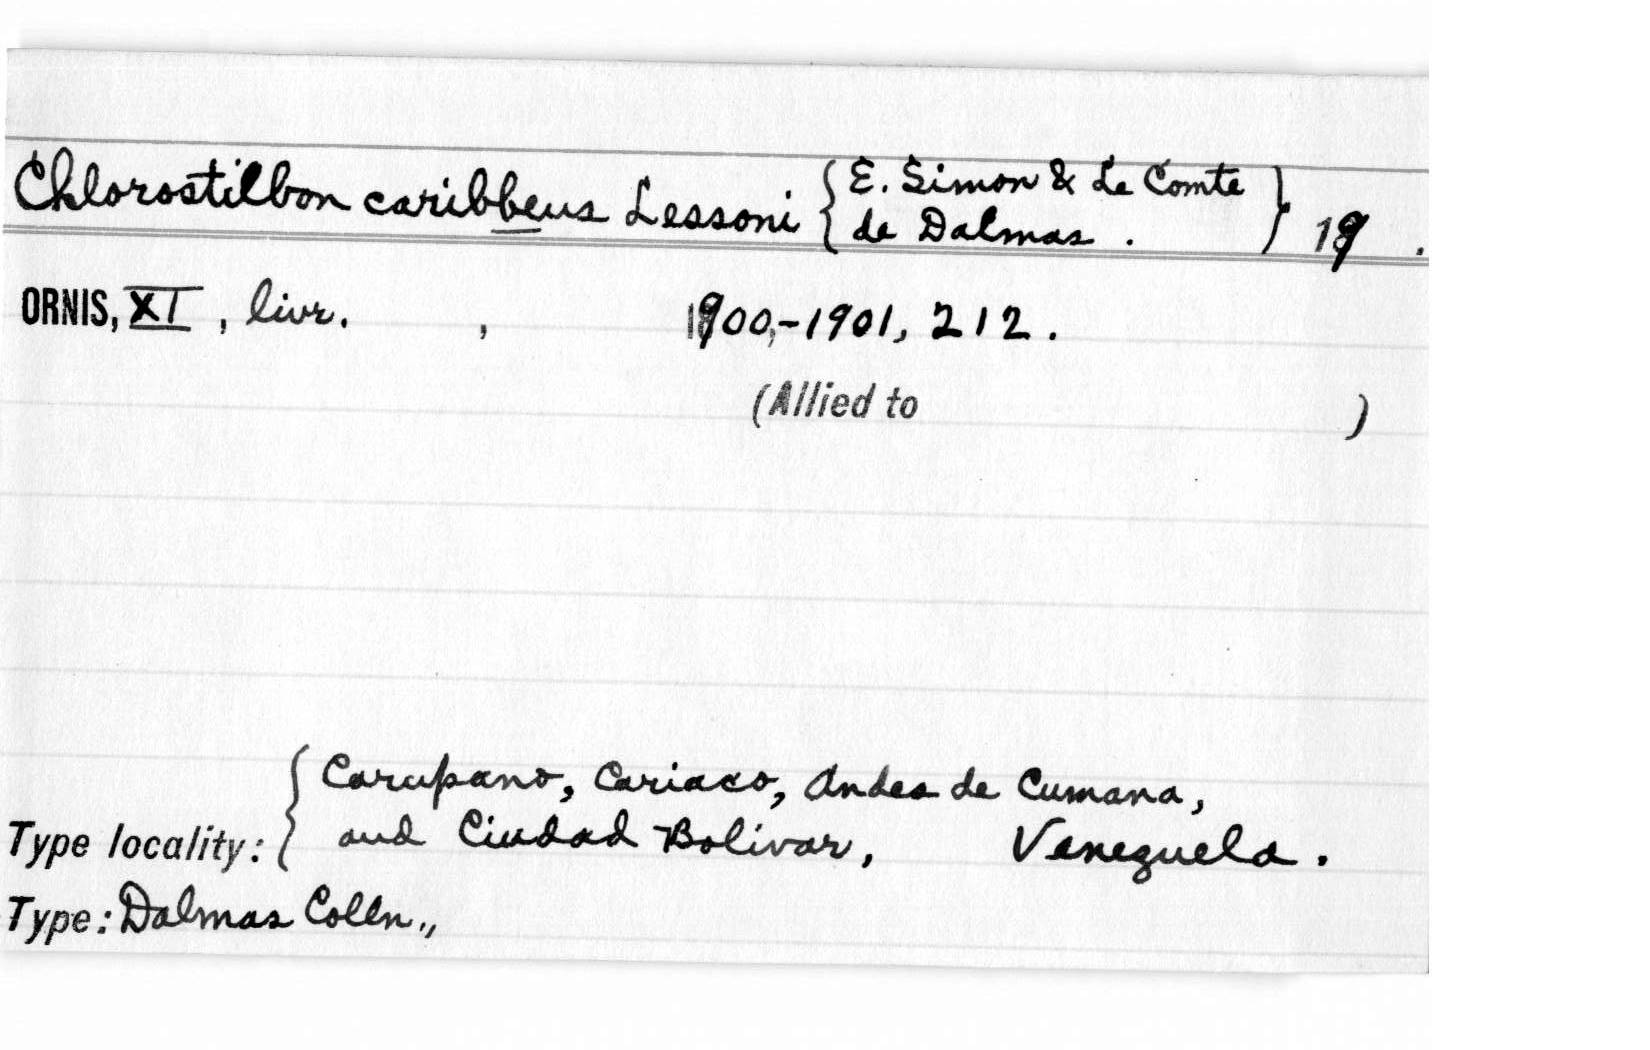 Chlorostilbon caribbeus Lessoni { E. Simon & Le Comte
de Dalmas . } 19 .
ORNIS, XI , livr. , 1900,-1901, 212 .
(Allied to )
Carupano, Cariaco, Andes de Cumana,
Type locality: { and Ciudad Bolivar, Venezuela .
Type: Dalmas Colln.,